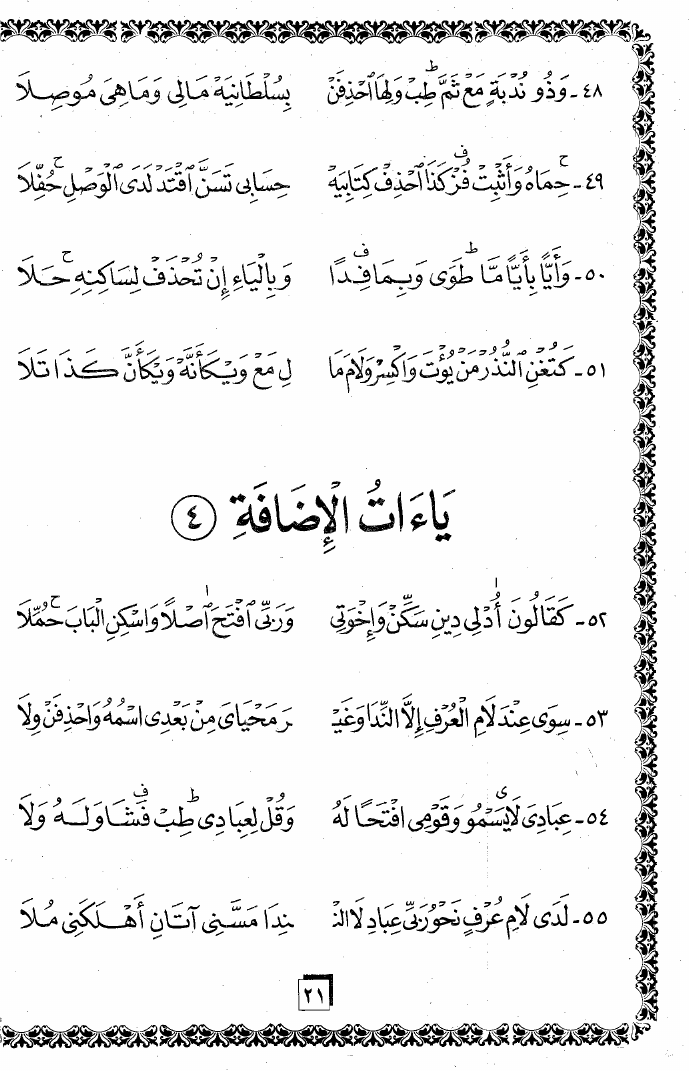 ٤٨- وَذُو نُدْبَةٍ مَعْ ثَمَّ طِبْ وَلِهَا ٱحْذِفَنْ بِسُلْطَانِيَهْ مَالِي وَمَا هِيَ مُوصِلَا
٤٩- حِمَاهُ وَأَثْبِتْ فُزْ كَذَا ٱحْذِفْ كِتَابِيَهْ حِسَابِي تَسَنَّ ٱقْتَدْ لَدَى ٱلْوَصْلِ حُفِّلَا
٥٠- وَأَيًّا بِأَيًّا مَّا طَوَى وَبِمَا فِدًا وَبِالْيَاءِ إِنْ تُحْذَفْ لِسَاكِنِهِ حَلَا
٥١- كَتُغْنِ النُّذُرْ مَنْ يُؤْتَ وَاكْسِرْ وَلَامَ مَا لِ مَعْ وَيْكَأَنَّهْ وَيْكَأَنَّ كَذَا تَلَا
يَاءَاتُ الْإِضَافَةِ ٤
٥٢- كَقَالُونَ أُدْ لِي دِينِ سَكِّنْ وَإِخْوَتِي وَرَبِّي ٱفْتَحَ ٱصْلًا وَاسْكِنِ الْبَابَ حُمِّلَا
٥٣- سِوَى عِنْدَ لَامِ الْعُرْفِ إِلَّا النِّدَا وَغَيْـ ـرَ مَحْيَايَ مِنْ بَعْدِي اسْمُهُ وَاحْذِفَنْ وِلَا
٥٤- عِبَادِيَ لَا يَسْمُو وَقَوْمِي افْتَحًا لَهُ وَقُلْ لِعِبَادِي طِبْ فَشَا وَلَهُ وَلَا
٥٥- لَدَى لَامِ عُرْفٍ نَحْوُ رَبِّي عِبَادِ لَا النْـ ـنِدَا مَسَّنِي آتَانِ أَهْلَكَنِي مُلَا
٢١